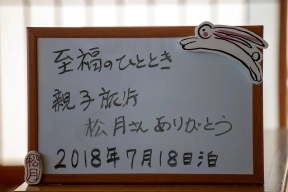 至福のひととき
親子旅行
松月さんありがとう
2018年7月18日泊
松月